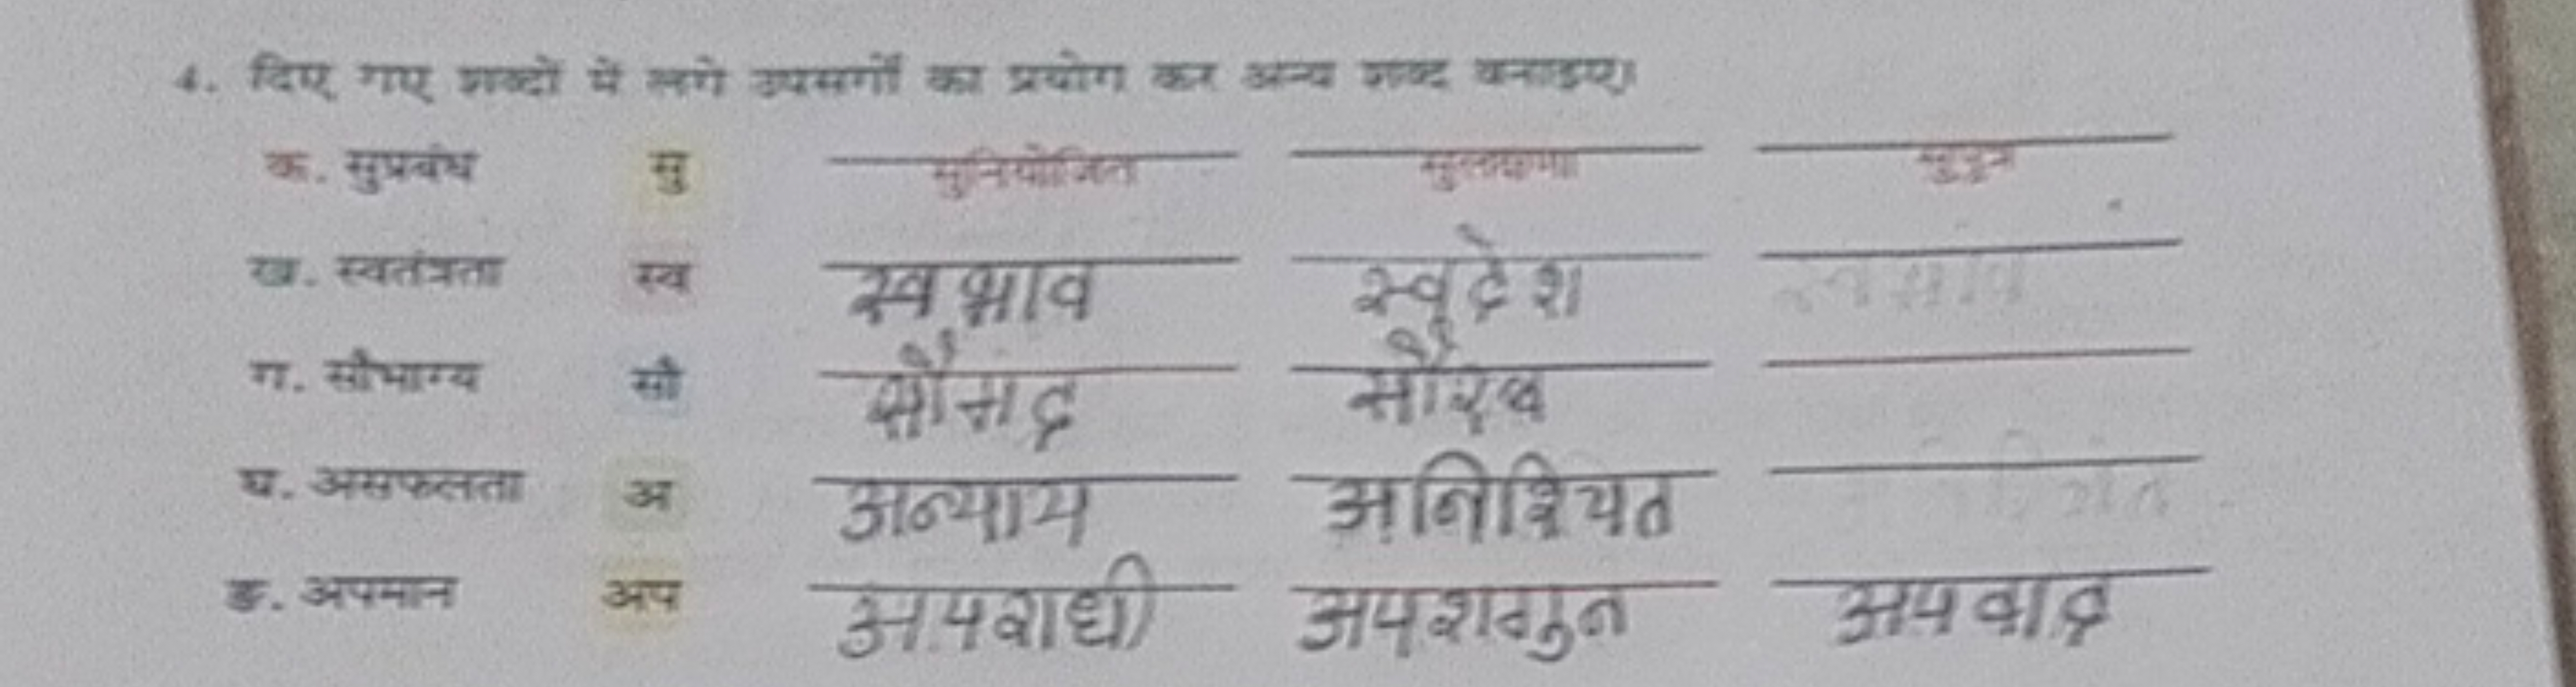 4. दिए गए शब्दों में लगे उपसर्गों का प्रयोग कर अन्य शब्द बनाइए।
क. सुप्रबंध सु सुनियोजित सुलक्षणा सुपुत्र
ख. स्वतंत्रता स्व स्वभाव स्वदेश
ग. सौभाग्य सौ
घ. असफलता अ अन्याय अनिश्चित
ङ. अपमान अप अपराधी अपशगुन अपवाद